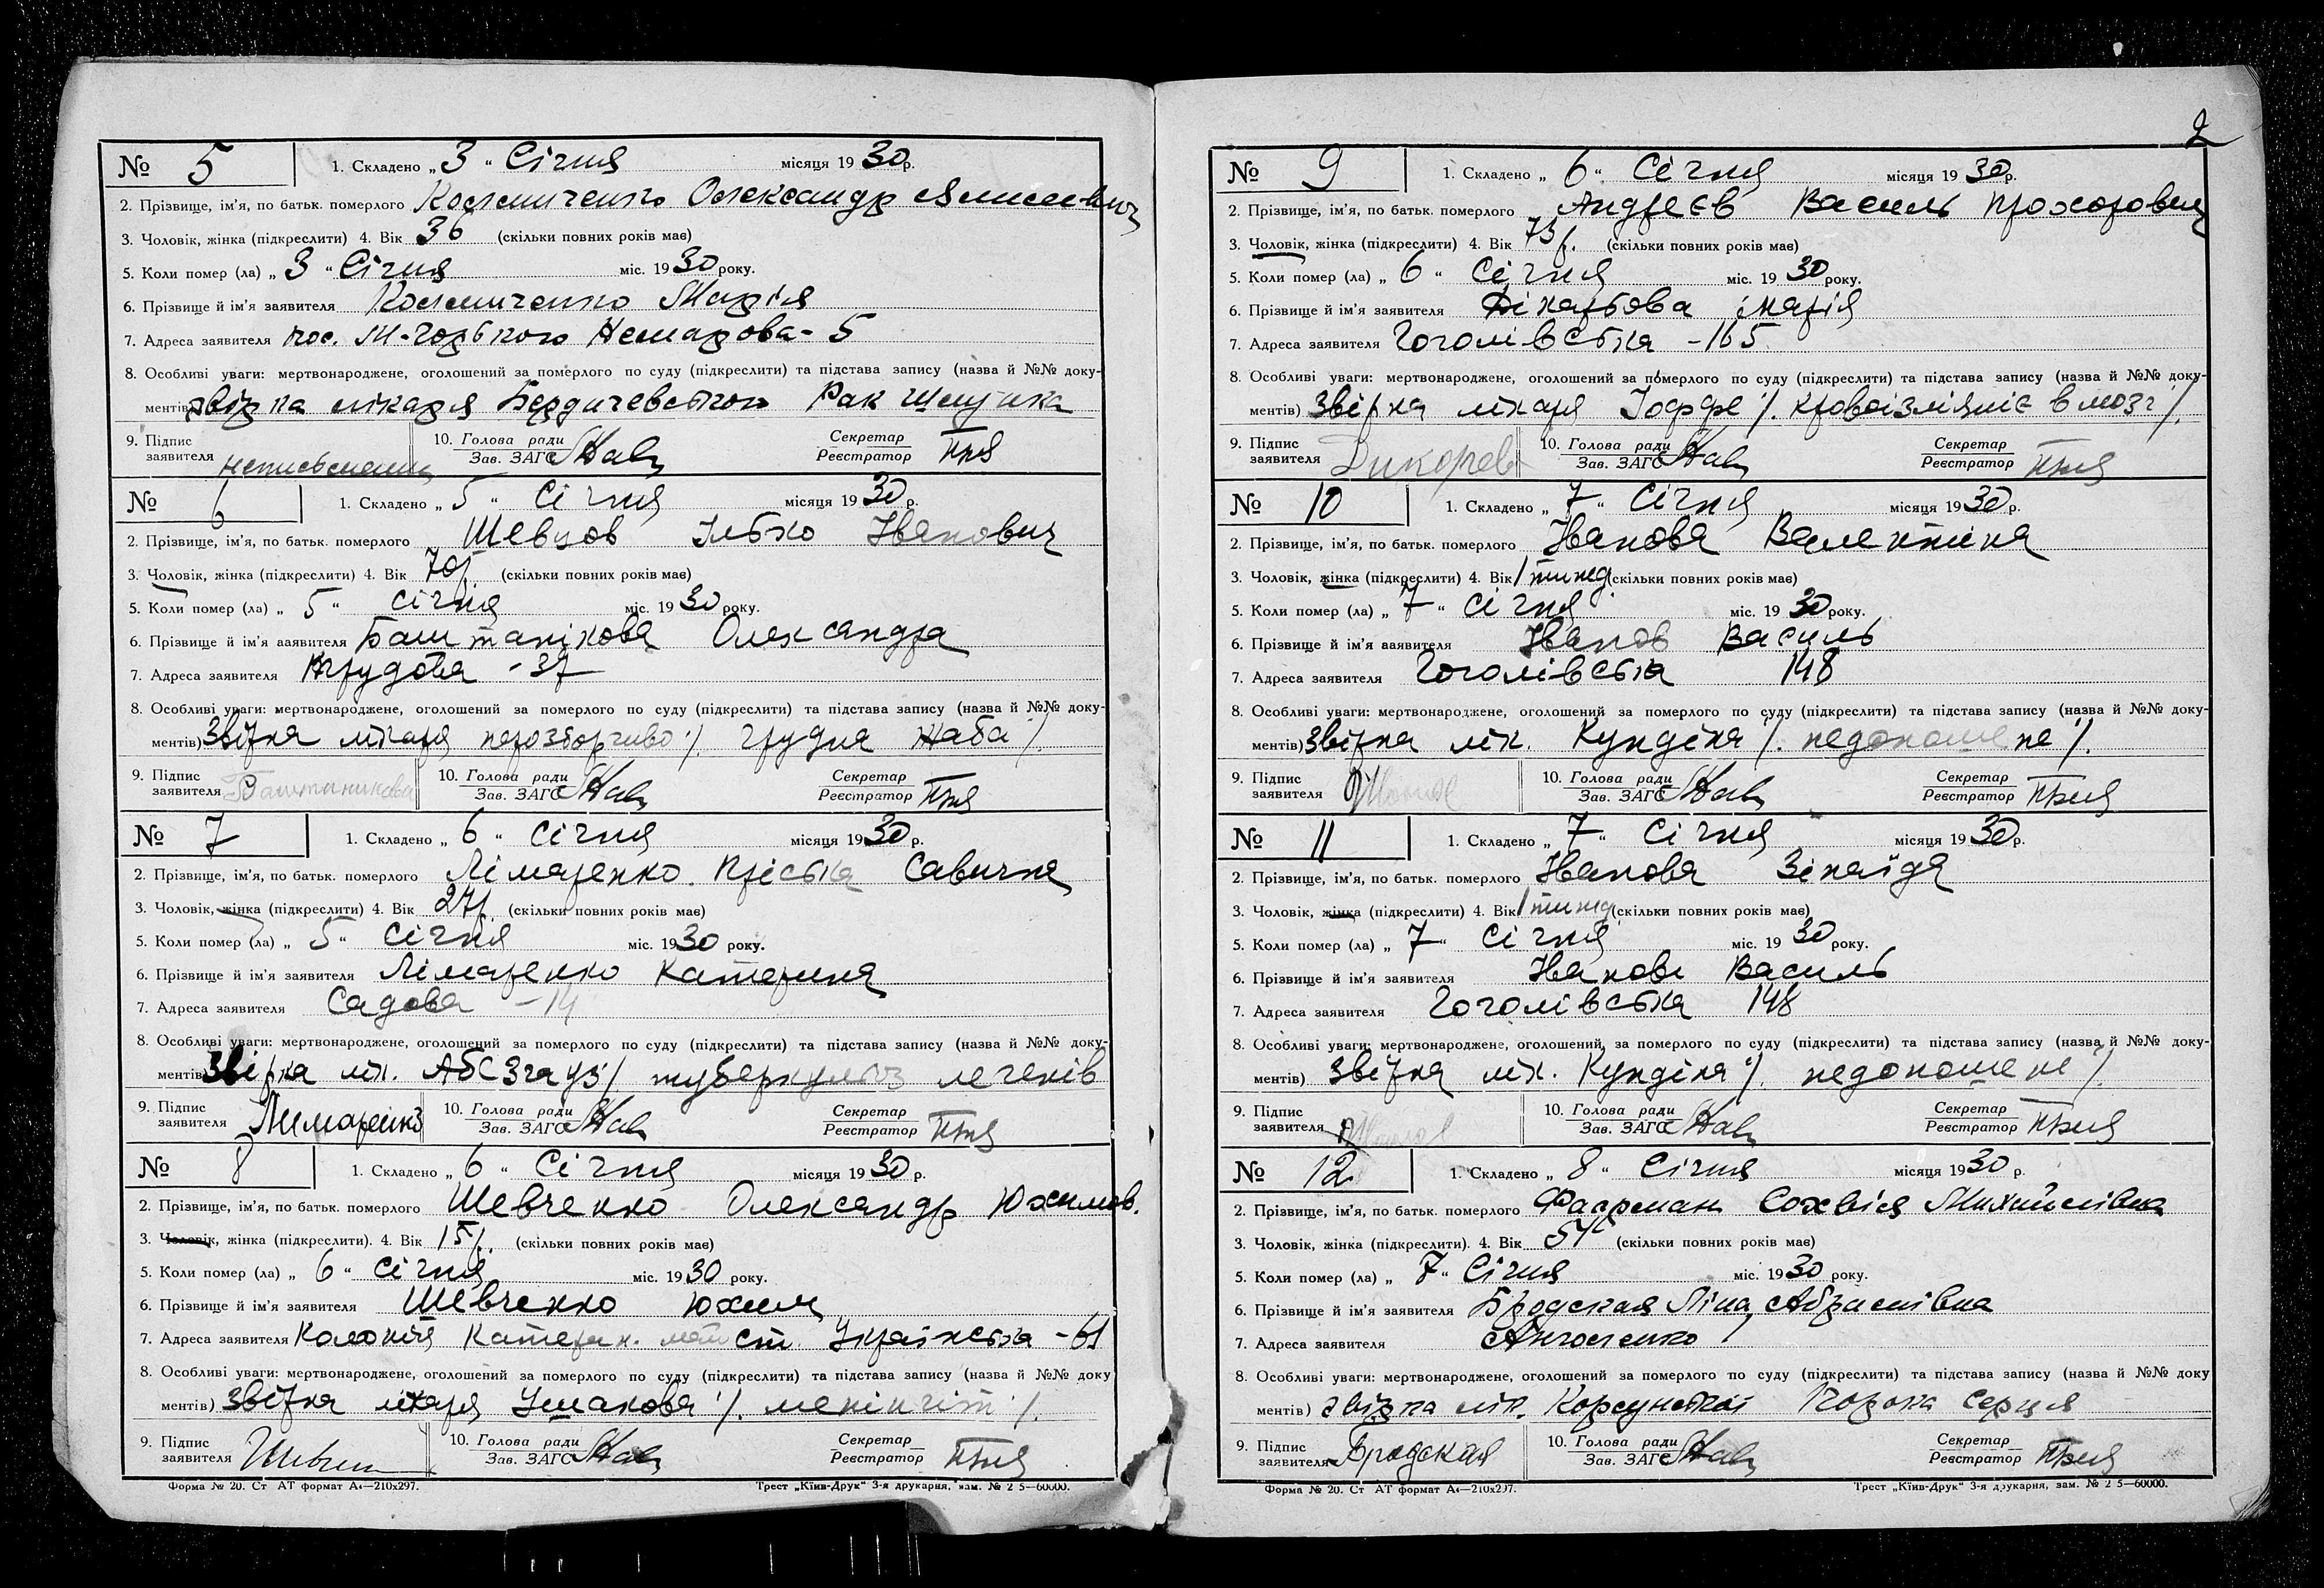 2
№ 5 1. Складено „ 3 “ Січня місяця 19 30 р.
2. Прізвище, ім’я, по батьк. померлого Олександр
3. Чоловік, жінка (підкреслити) 4. Вік 36 (скільки повних років має)
5. Коли помер (ла) „ 3 “ Січня міс. 19 30 року.
6. Прізвище й ім’я заявителя Марія
7. Адреса заявителя пос. М-Горького - 5
8. Особливі уваги: мертвонароджене, оголошений за померлого по суду (підкреслити) та підстава запису (назва й №№ доку-
ментів) звірка лікаря Бердичевського Рак шлунка
9. Підпис заявителя 10. Голова ради Зав. ЗАГС Секретар Реєстратор
№ 6 1. Складено „ 5 “ Січня місяця 19 30 р.
2. Прізвище, ім’я, по батьк. померлого Шевцов Ілько Іванович
3. Чоловік, жінка (підкреслити) 4. Вік 70 р. (скільки повних років має)
5. Коли помер (ла) „ 5 “ січня міс. 19 30 року.
6. Прізвище й ім’я заявителя Баштанікова Олександра
7. Адреса заявителя - 37
8. Особливі уваги: мертвонароджене, оголошений за померлого по суду (підкреслити) та підстава запису (назва й №№ доку-
ментів) Звірка лікаря нерозборчиво /. грудна жаба /.
9. Підпис заявителя Баштаникова 10. Голова ради Зав. ЗАГС Секретар Реєстратор
№ 7 1. Складено „ 6 “ Січня місяця 19 30 р.
2. Прізвище, ім’я, по батьк. померлого Лімаренко Пріська Савична
3. Чоловік, жінка (підкреслити) 4. Вік 27 р. (скільки повних років має)
5. Коли помер (ла) „ 5 “ Січня міс. 19 30 року.
6. Прізвище й ім’я заявителя Лімаренко Катерина
7. Адреса заявителя Садова - 14
8. Особливі уваги: мертвонароджене, оголошений за померлого по суду (підкреслити) та підстава запису (назва й №№ доку-
ментів) Звірка лік. туберкульоз легенів
9. Підпис заявителя Лимаренко 10. Голова ради Зав. ЗАГС Секретар Реєстратор
№ 8 1. Складено „ 6 “ Січня місяця 19 30 р.
2. Прізвище, ім’я, по батьк. померлого Шевченко Олександр Юхимов.
3. Чоловік, жінка (підкреслити). 4. Вік 15 р. (скільки повних років має)
5. Коли помер (ла) „ 6 “ січня міс. 19 30 року.
6. Прізвище й ім’я заявителя Шевченко Юхим
7. Адреса заявителя Колонія Катерин. ст. Українська - 61
8. Особливі уваги: мертвонароджене, оголошений за померлого по суду (підкреслити) та підстава запису (назва й №№ доку
ментів) Звірка лікаря Ушакова /. менінгіт /.
9. Підпис заявителя 10. Голова ради Зав. ЗАГС Секретар Реєстратор
Форма № 20. Ст АТ формат А4—210х297. Трест „Київ-Друк“ 3-я друкарня, зам. № 2 5—60000.
№ 9 1. Складено „ 6 “ Січня місяця 19 30 р.
2. Прізвище, ім’я, по батьк. померлого Андреєв Василь Прохорович
3. Чоловік, жінка (підкреслити) 4. Вік 73 р. (скільки повних років має)
5. Коли помер (ла) „ 6 “ Січня міс. 19 30 року.
6. Прізвище й ім’я заявителя Дікарьова Марія
7. Адреса заявителя Гоголівська - 165
8. Особливі уваги: мертвонароджене, оголошений за померлого по суду (підкреслити) та підстава запису (назва й №№ доку-
ментів) Звірка лікаря Іоффе /. кровоізліяніє в мозг /.
9. Підпис заявителя 10. Голова ради Зав. ЗАГС Секретар Реєстратор
№ 10 1. Складено „ 7 “ Січня місяця 19 30 р.
2. Прізвище, ім’я, по батьк. померлого Іванова Валентіна
3. Чоловік, жінка (підкреслити) 4. Вік 1 тижд (скільки повних років має)
5. Коли помер (ла) „ 7 “ січня міс. 19 30 року.
6. Прізвище й ім’я заявителя Іванов Василь
7. Адреса заявителя Гоголівська 148
8. Особливі уваги: мертвонароджене, оголошений за померлого по суду (підкреслити) та підстава запису (назва й №№ доку-
ментів) Звірка лік. Кундіна /. недоношене /.
9. Підпис заявителя 10. Голова ради Зав. ЗАГС Секретар Реєстратор
№ 11 1. Складено „ 7 “ Січня місяця 19 30 р.
2. Прізвище, ім’я, по батьк. померлого Іванова Зінаїда
3. Чоловік, жінка (підкреслити) 4. Вік 1 тижд (скільки повних років має)
5. Коли помер (ла) „ 7 “ Січня міс. 19 30 року.
6. Прізвище й ім’я заявителя Іванов Василь
7. Адреса заявителя Гоголівська 148
8. Особливі уваги: мертвонароджене, оголошений за померлого по суду (підкреслити) та підстава запису (назва й №№ доку-
ментів) Звірка лік. Кундіна /. недоношене /.
9. Підпис заявителя 10. Голова ради Зав. ЗАГС Секретар Реєстратор
№ 12 1. Складено „ 8 “ Січня місяця 19 30 р.
2. Прізвище, ім’я, по батьк. померлого Сохвія Михайлівна
3. Чоловік, жінка (підкреслити). 4. Вік 54 (скільки повних років має)
5. Коли помер (ла) „ 7 “ Січня міс. 19 30 року.
6. Прізвище й ім’я заявителя Бродская Ліна Абрамівна
7. Адреса заявителя
8. Особливі уваги: мертвонароджене, оголошений за померлого по суду (підкреслити) та підстава запису (назва й №№ доку
ментів) звірка лік. Корсунської Порока серця
9. Підпис заявителя Бродская 10. Голова ради Зав. ЗАГС Секретар Реєстратор
Форма № 20. Ст АТ формат А4—210х297. Трест „Київ-Друк“ 3-я друкарня, зам. № 2 5—60000.